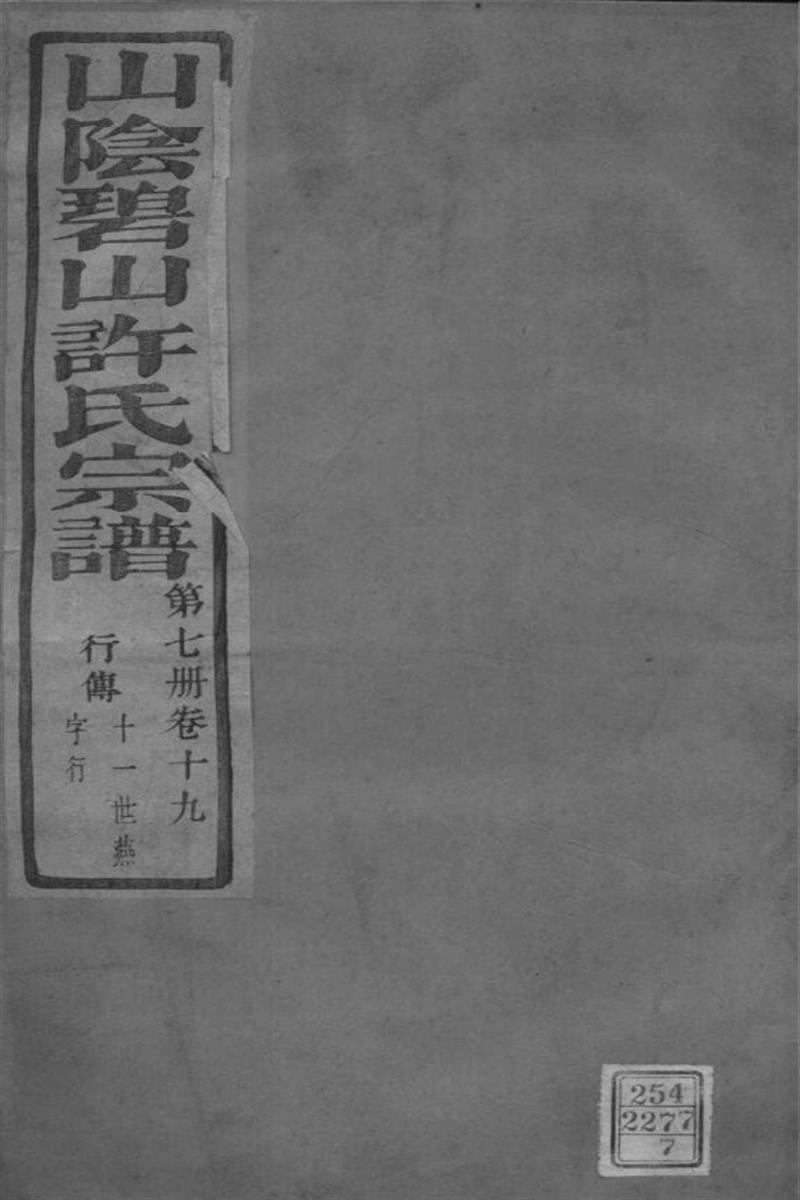 山陰碧山許氏宗譜
第七册卷十九
行傳
十一世燕
字行
254
2277
7